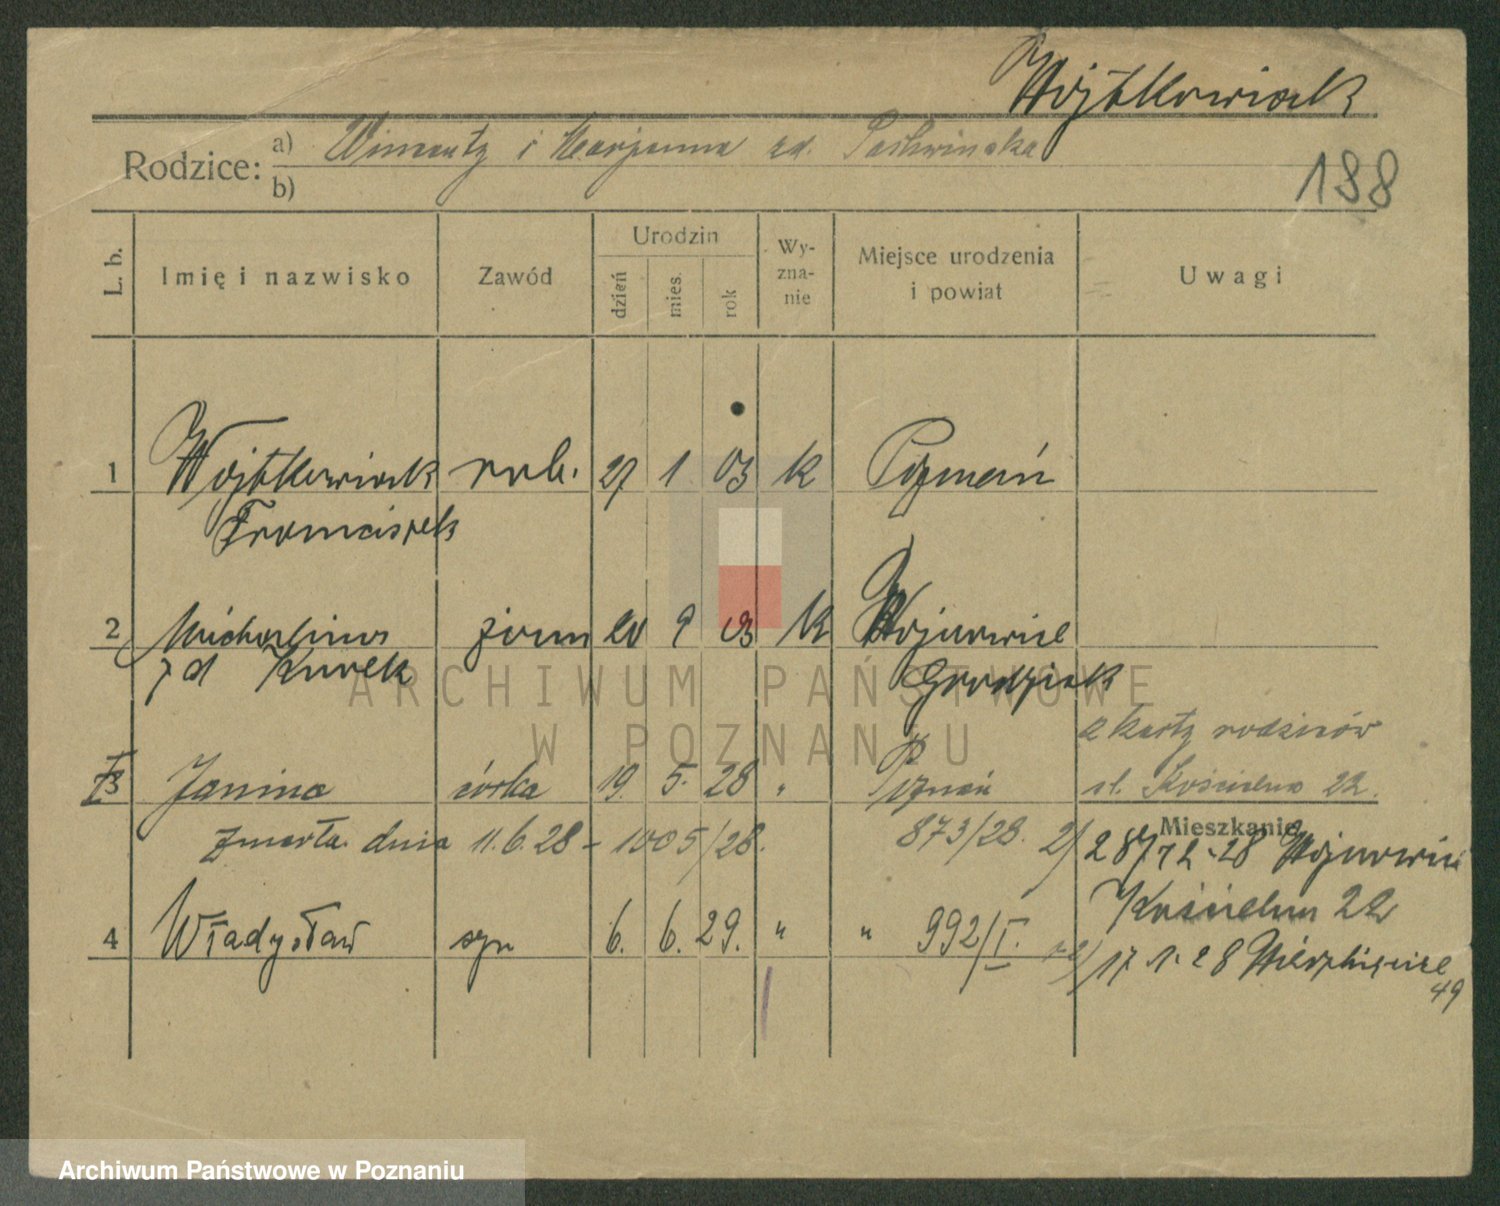 Wojtkowiak
Rodzice: a) Wincenty i Marjanna zd.
b)
188
L. b.
Imię i nazwisko
Zawód
Urodzin
dzień
mies.
rok
Wy-
zna-
nie
Miejsce urodzenia
i powiat
Uwagi
1 Wojtkowiak rob. 27 1 03 k Poznań
Franciszek
2 Michalina żona 20 9 03 k
zd Kurek Grodzisk
z karty rodziców
3 Janina córka 19. 5. 28 " Poznań ul. Kościelna 22.
Mieszkanie
zmarła dnia 11.6.28 – 1005/28. 873/28. 2/ 28/72-28
Kościelna 22
4 Władysław syn 6. 6. 29. " " 992/I.
17 1. 28 Wierzbięcice
49
ARCHIWUM PAŃSTWOWE
W POZNANIU
Archiwum Państwowe w Poznaniu